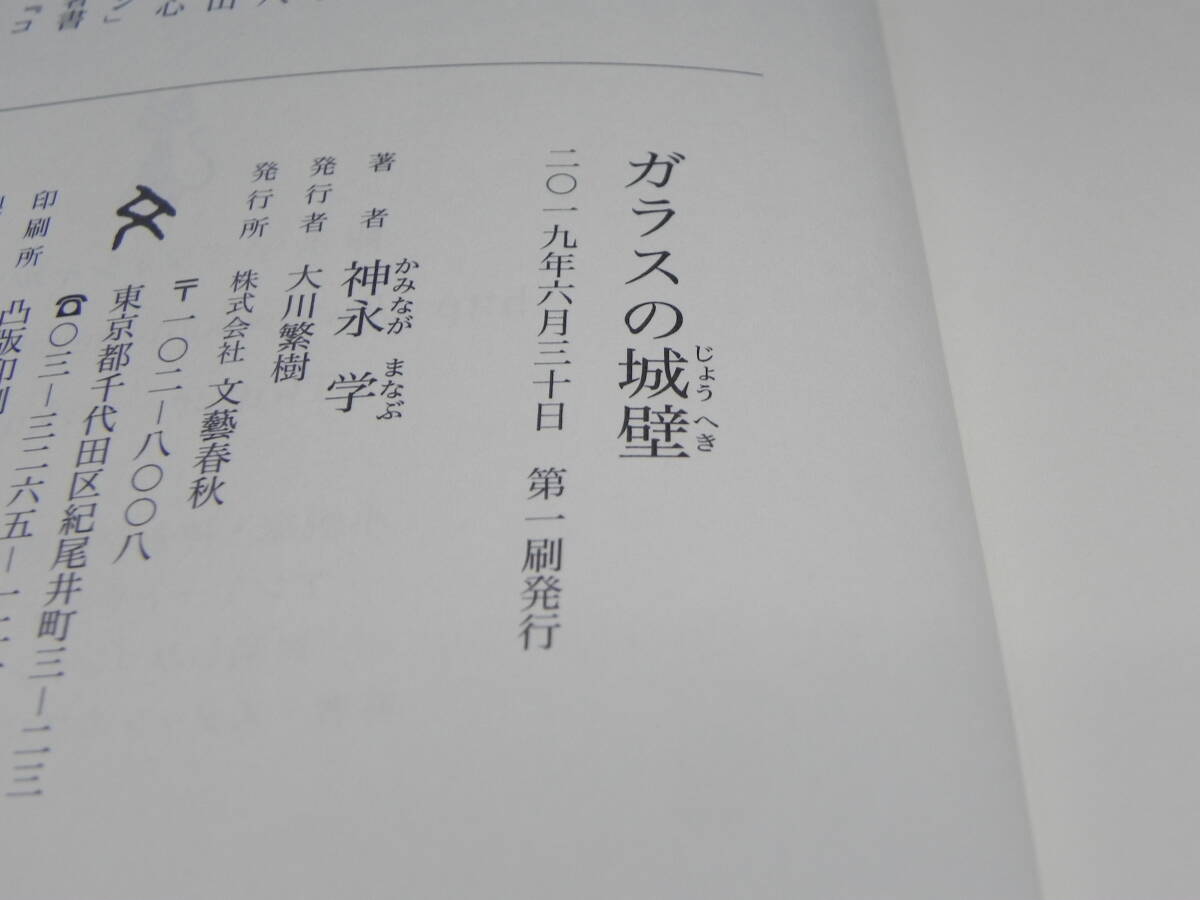 ガラスの城壁
じょうへき
二〇一九年六月三十日 第一刷発行
著者 神永 学
かみなが まなぶ
発行者 大川繁樹
発行所 株式会社 文藝春秋
〒一〇二─八〇〇八
東京都千代田区紀尾井町三─二三
☎〇三─三二六五─一二一
印刷所 凸版印刷